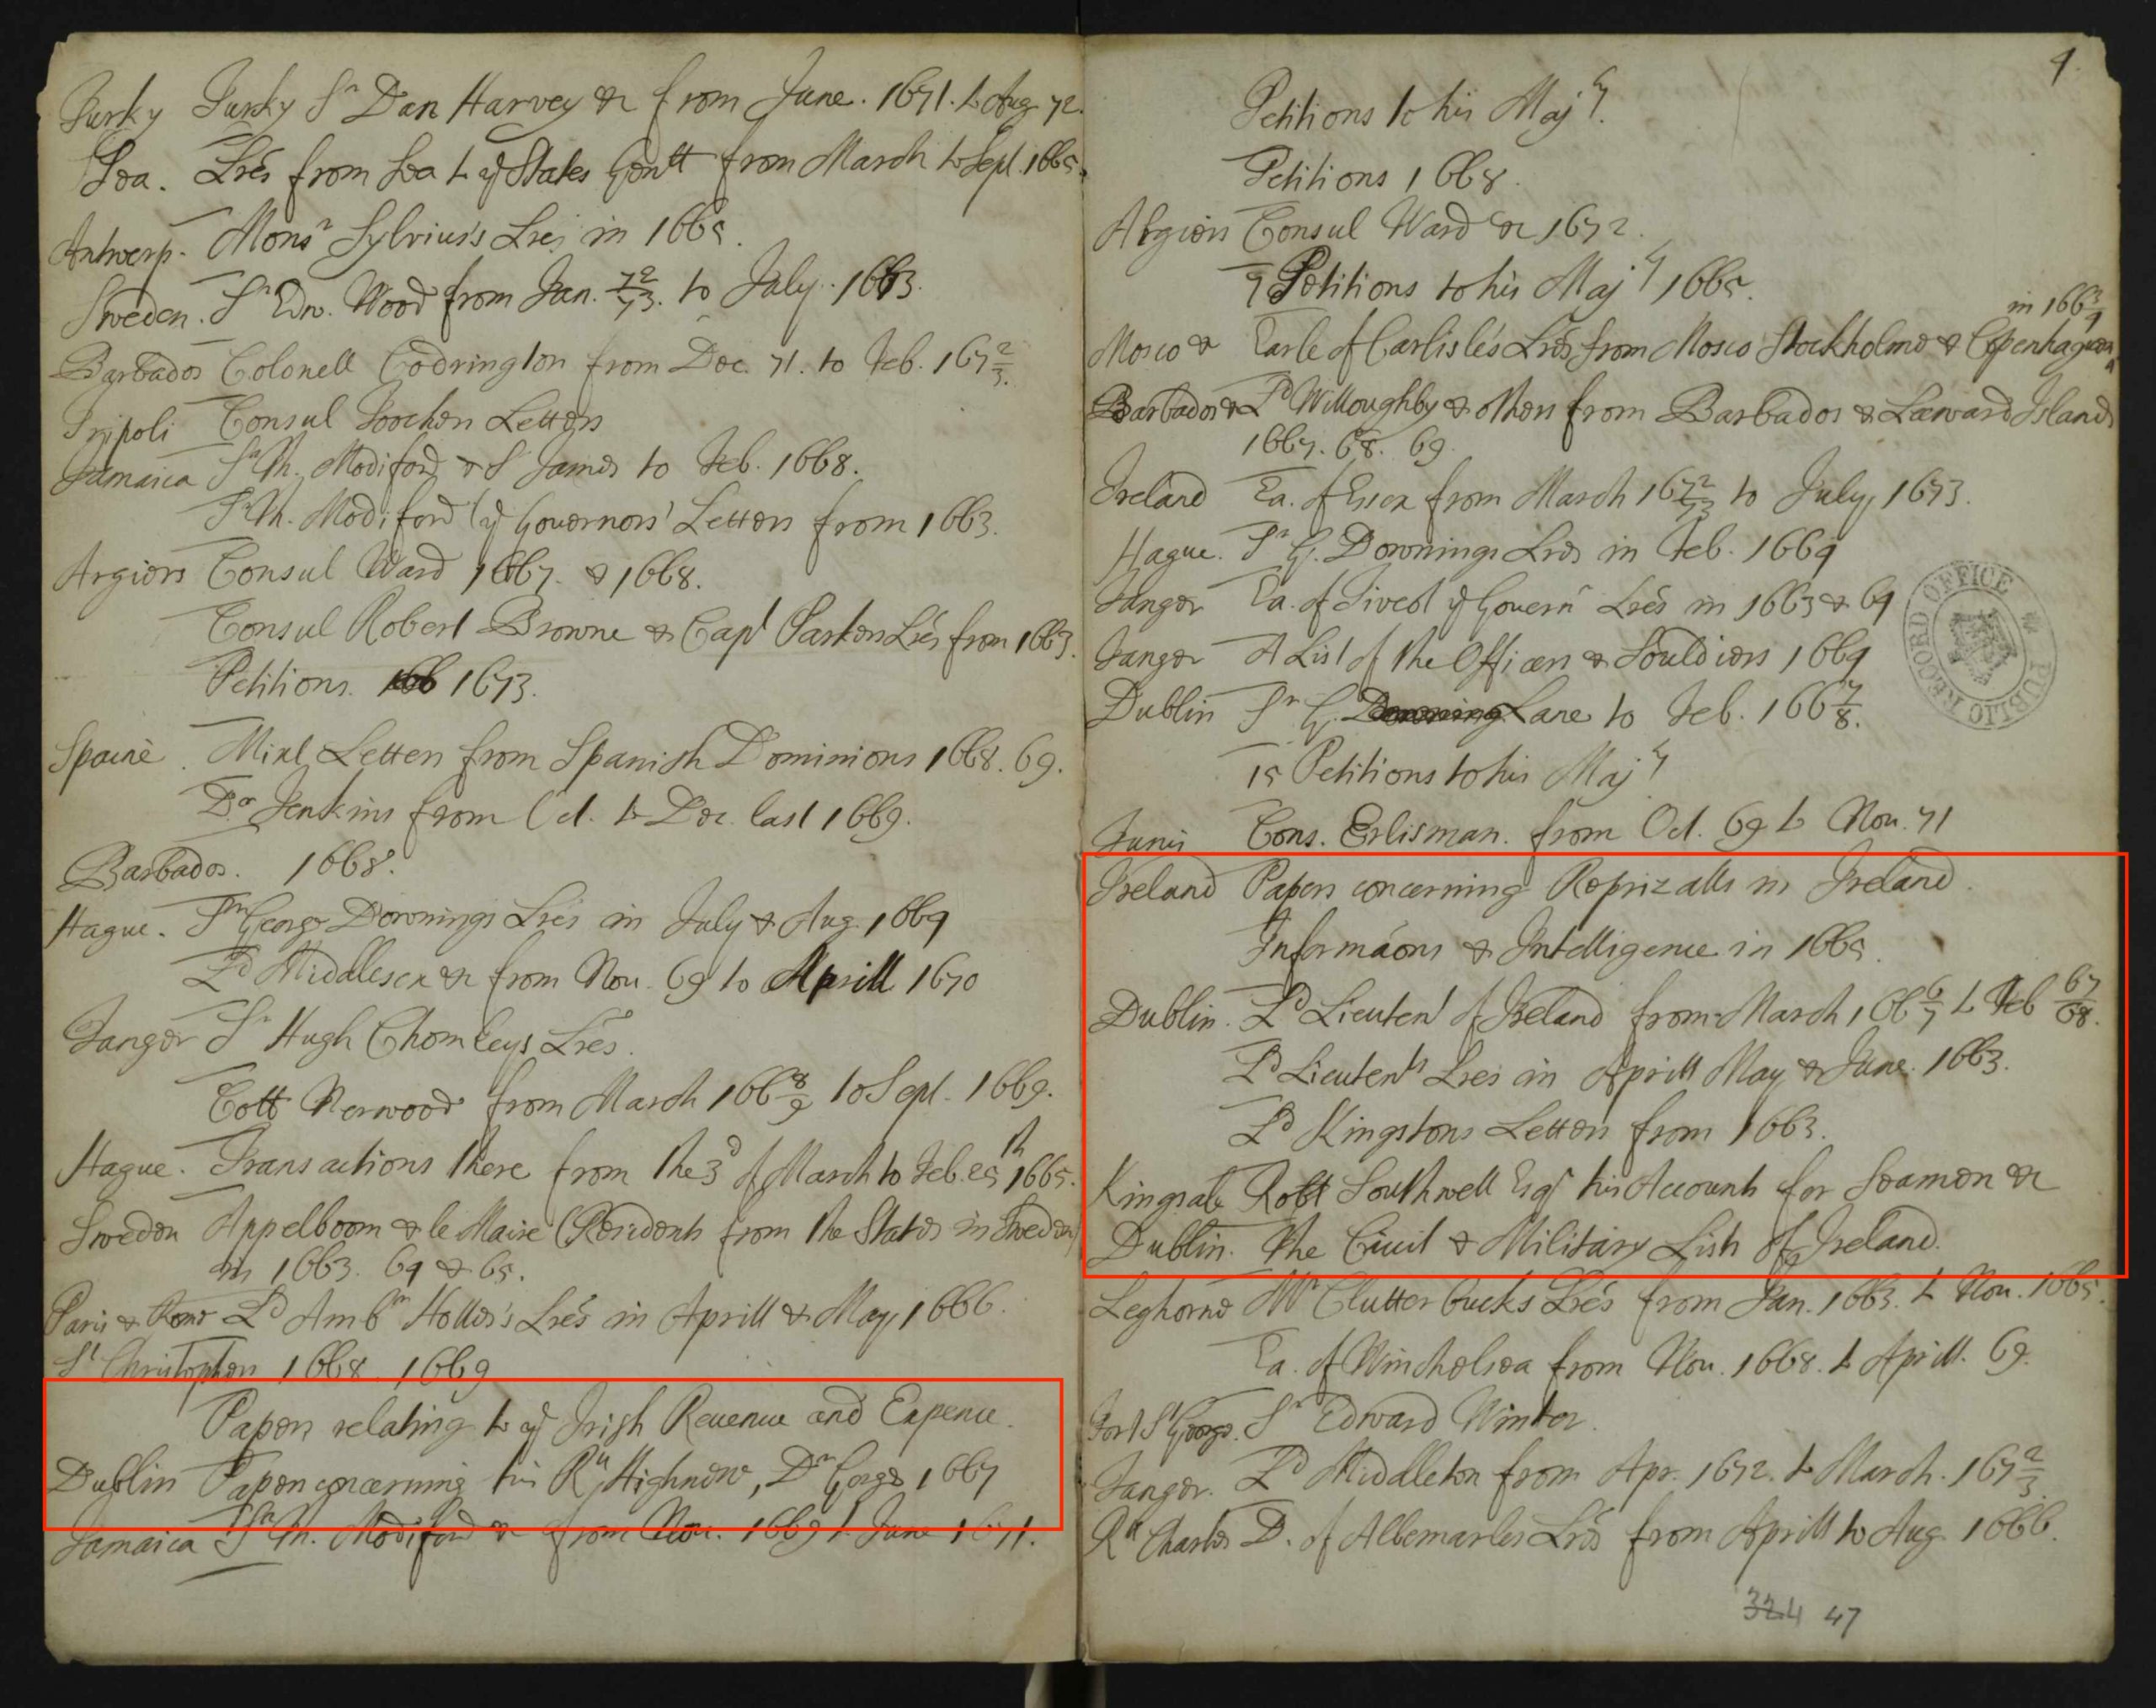 Turky Turky Sr Dan Harvey &c from June. 1671. to Aug 72.
Sea. Lres from Sea to ye States Genll from March to Sept. 1665.
Antwerp. Monsr Sylvius's Lres in 1665.
Sweden. Sr Edw. Wood from Jan. 72/73. to July. 1673.
Barbados Colonell Codrington from Dec. 71. to Feb. 167 2/3.
Tripoli Consul Letters
Jamaica Sr Th. Modiford & S James to Feb. 1668.
Sr Th. Modiford (ye Governors) Letters from 1663.
Argiers Consul Ward 1667. & 1668.
Consul Robert Browne & Capt Parkers Lres from 1663.
Petitions. 1673.
Spaine. Mixt Letters from Spanish Dominions 1668. 69.
Dr Jenkins from Oct. to Dec. last 1669.
Barbados. 1668.
Hague. Sr George Downings Lres in July & Aug. 1664
Ld Middlesex &c from Nov. 69 to Aprill 1670
Tanger Sr Hugh Chomleys Lres.
Coll Norwood from March 166 8/9 to Sept. 1669.
Hague. Transactions there from the 3d of March to Feb. 25th 1665.
Sweden Appelboom & le Maire (Residents from the States in Sweden)
in 1663. 64 & 65.
Paris & Ld Ambr Hollis's Lres in Aprill & May, 1666.
St Christophers 1668. 1669
Papers relating to ye Irish Revenue and Expence.
Dublin Papers concerning his R. Highness, Dr Gorges 1667
Jamaica Sr Th. Modiford &c from Nov. 1669 to June 1671.
4.
Petitions to his Majty.
Petitions 1668.
Argiers Consul Ward &c 1672.
9 Petitions to his Majty 1665.
in 166 3/4
Mosco & Earle of Carlisle's Lres from Mosco Stockholme & Copenhagen
Barbados & Ld Willoughby & others from Barbados & Leeward Islands
1667. 68. 69.
Ireland Ea. of Essex from March 167 2/3 to July, 1673.
Hague. Sr G. Downings Lres in Feb. 1664
Tanger Ea. of Tiveot ye Governr Lres in 1663 & 64
Tanger A List of the Officers & Souldiers 1664
Dublin Sr G. Downing Lane to Feb. 166 7/8.
15 Petitions to his Majty
Tunis Cons. Erlisman. from Oct. 69 to Nov. 71
Ireland Papers concerning Reprizalls in Ireland.
Informaons & Intelligence in 1665.
Dublin. Ld Lieutent of Ireland from March 166 6/7 to Feb 67/68.
Ld Lieutents Lres in Aprill May & June. 1663.
Ld Kingstons Letters from 1663.
Kingsale Robt Southwell Esqr his Accounts for Seamen &c
Dublin. The Civil & Military Lists of Ireland.
Leghorne Mr Clutterbucks Lres from Jan. 1663. to Nov. 1665.
Ea. of Winchelsea from Nov. 1668. to Aprill. 69.
Fort St George. Sr Edward Winter.
Tanger. Ld Middleton from Apr. 1672. to March. 167 2/3.
Rll Charles D. of Albemarles Lres from Aprill to Aug. 1666.
PUBLIC RECORD OFFICE
324 47